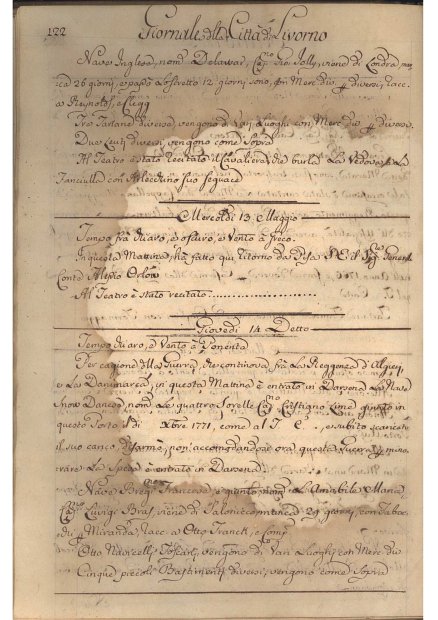 122 Giornale della Città di Livorno
Nave Inglese, nom.ta Delawar, Cap.no Gio: Jolly, viene di Londra manca
26 giorni, e passò lo stretto 12 giorni sono, con Merc. div. p. diversi, racc.
a Reynolds, e
Tre Tartane diverse, vengono di Vari Luoghi con Merc. div. p. diversi.
Due Leuti diversi, vengono come Sopra
Al Teatro è stato recitato il Cavaliere che burla La Vedova, e La
Fanciulla con Arlecchino suo seguace
Mercoledì 13 Maggio
Tempo fra chiaro, e oscuro, e Vento à greco.
In questa Mattina, ha fatto qui ritorno da Pisa S.E. il Sig.re General
Conte Alessio Orlow
Al Teatro è stato recitato ..............
Giovedì 14 Detto
Tempo chiaro, e Vento à Ponente
Per cagione della Guerra che continova fra La Reggenza d'Algieri,
e La Danimarca, in questa Mattina è entrato in Darsena La Nave
Snow Danese nom. Le quattro Sorelle Cap.no Cristiano giunto in
questo Porto il dì Xbre 1771, come al J. C. , e subito scaricato
il suo carico, disarmò, non accomodandole ora questa Guerra,
La Spese è entrato in Darsena
Nave Bregi Francese, e giunto, nom. L'Amabile Maria,
Cap.no Luvigi Bras, viene di Salonicco manca 29 giorni, con Tabac.
di p. Miranda, racc. a Otto Franck, e Comp.
Otto Navicelli Toscani, vengono di Vari Luoghi con Merc. div.
Cinque piccoli Bastimenti diversi, vengono come Sopra